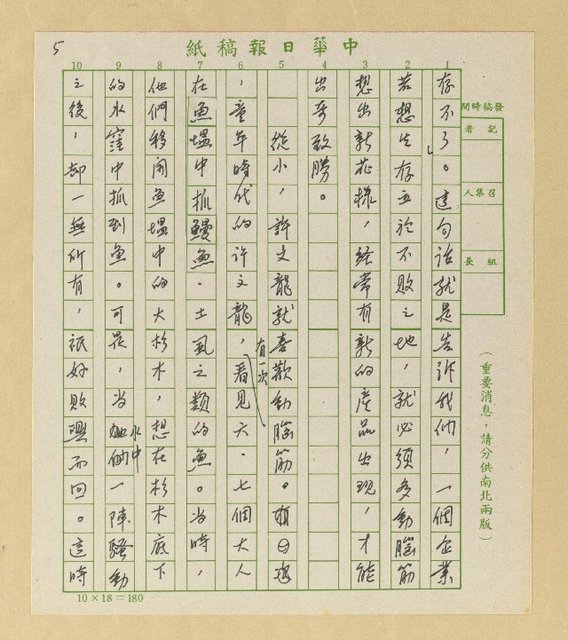 中華日報稿紙
5
發稿時間
記者
召集人
組長
(重要消息，請分供南北兩版)
1 2 3 4 5 6 7 8 9 10
存不了」。這句話就是告訴我們，一個企業
若想生存並於不敗之地，就必須多動腦筋
想出新花樣，經常有新的產品出現，才能
出奇致勝。
從小，許文龍就喜歡動腦筋。
，童年時代的許文龍，有一次看見六、七個大人
在魚塭中抓鰻魚、土風之類的魚。當時，
他們移開魚塭中的大杉木，想在杉木底下
的水窪中抓到魚。可是，當他們水中一陣騷動
之後，卻一無所有，祇好敗興而回。這時
10×18=180